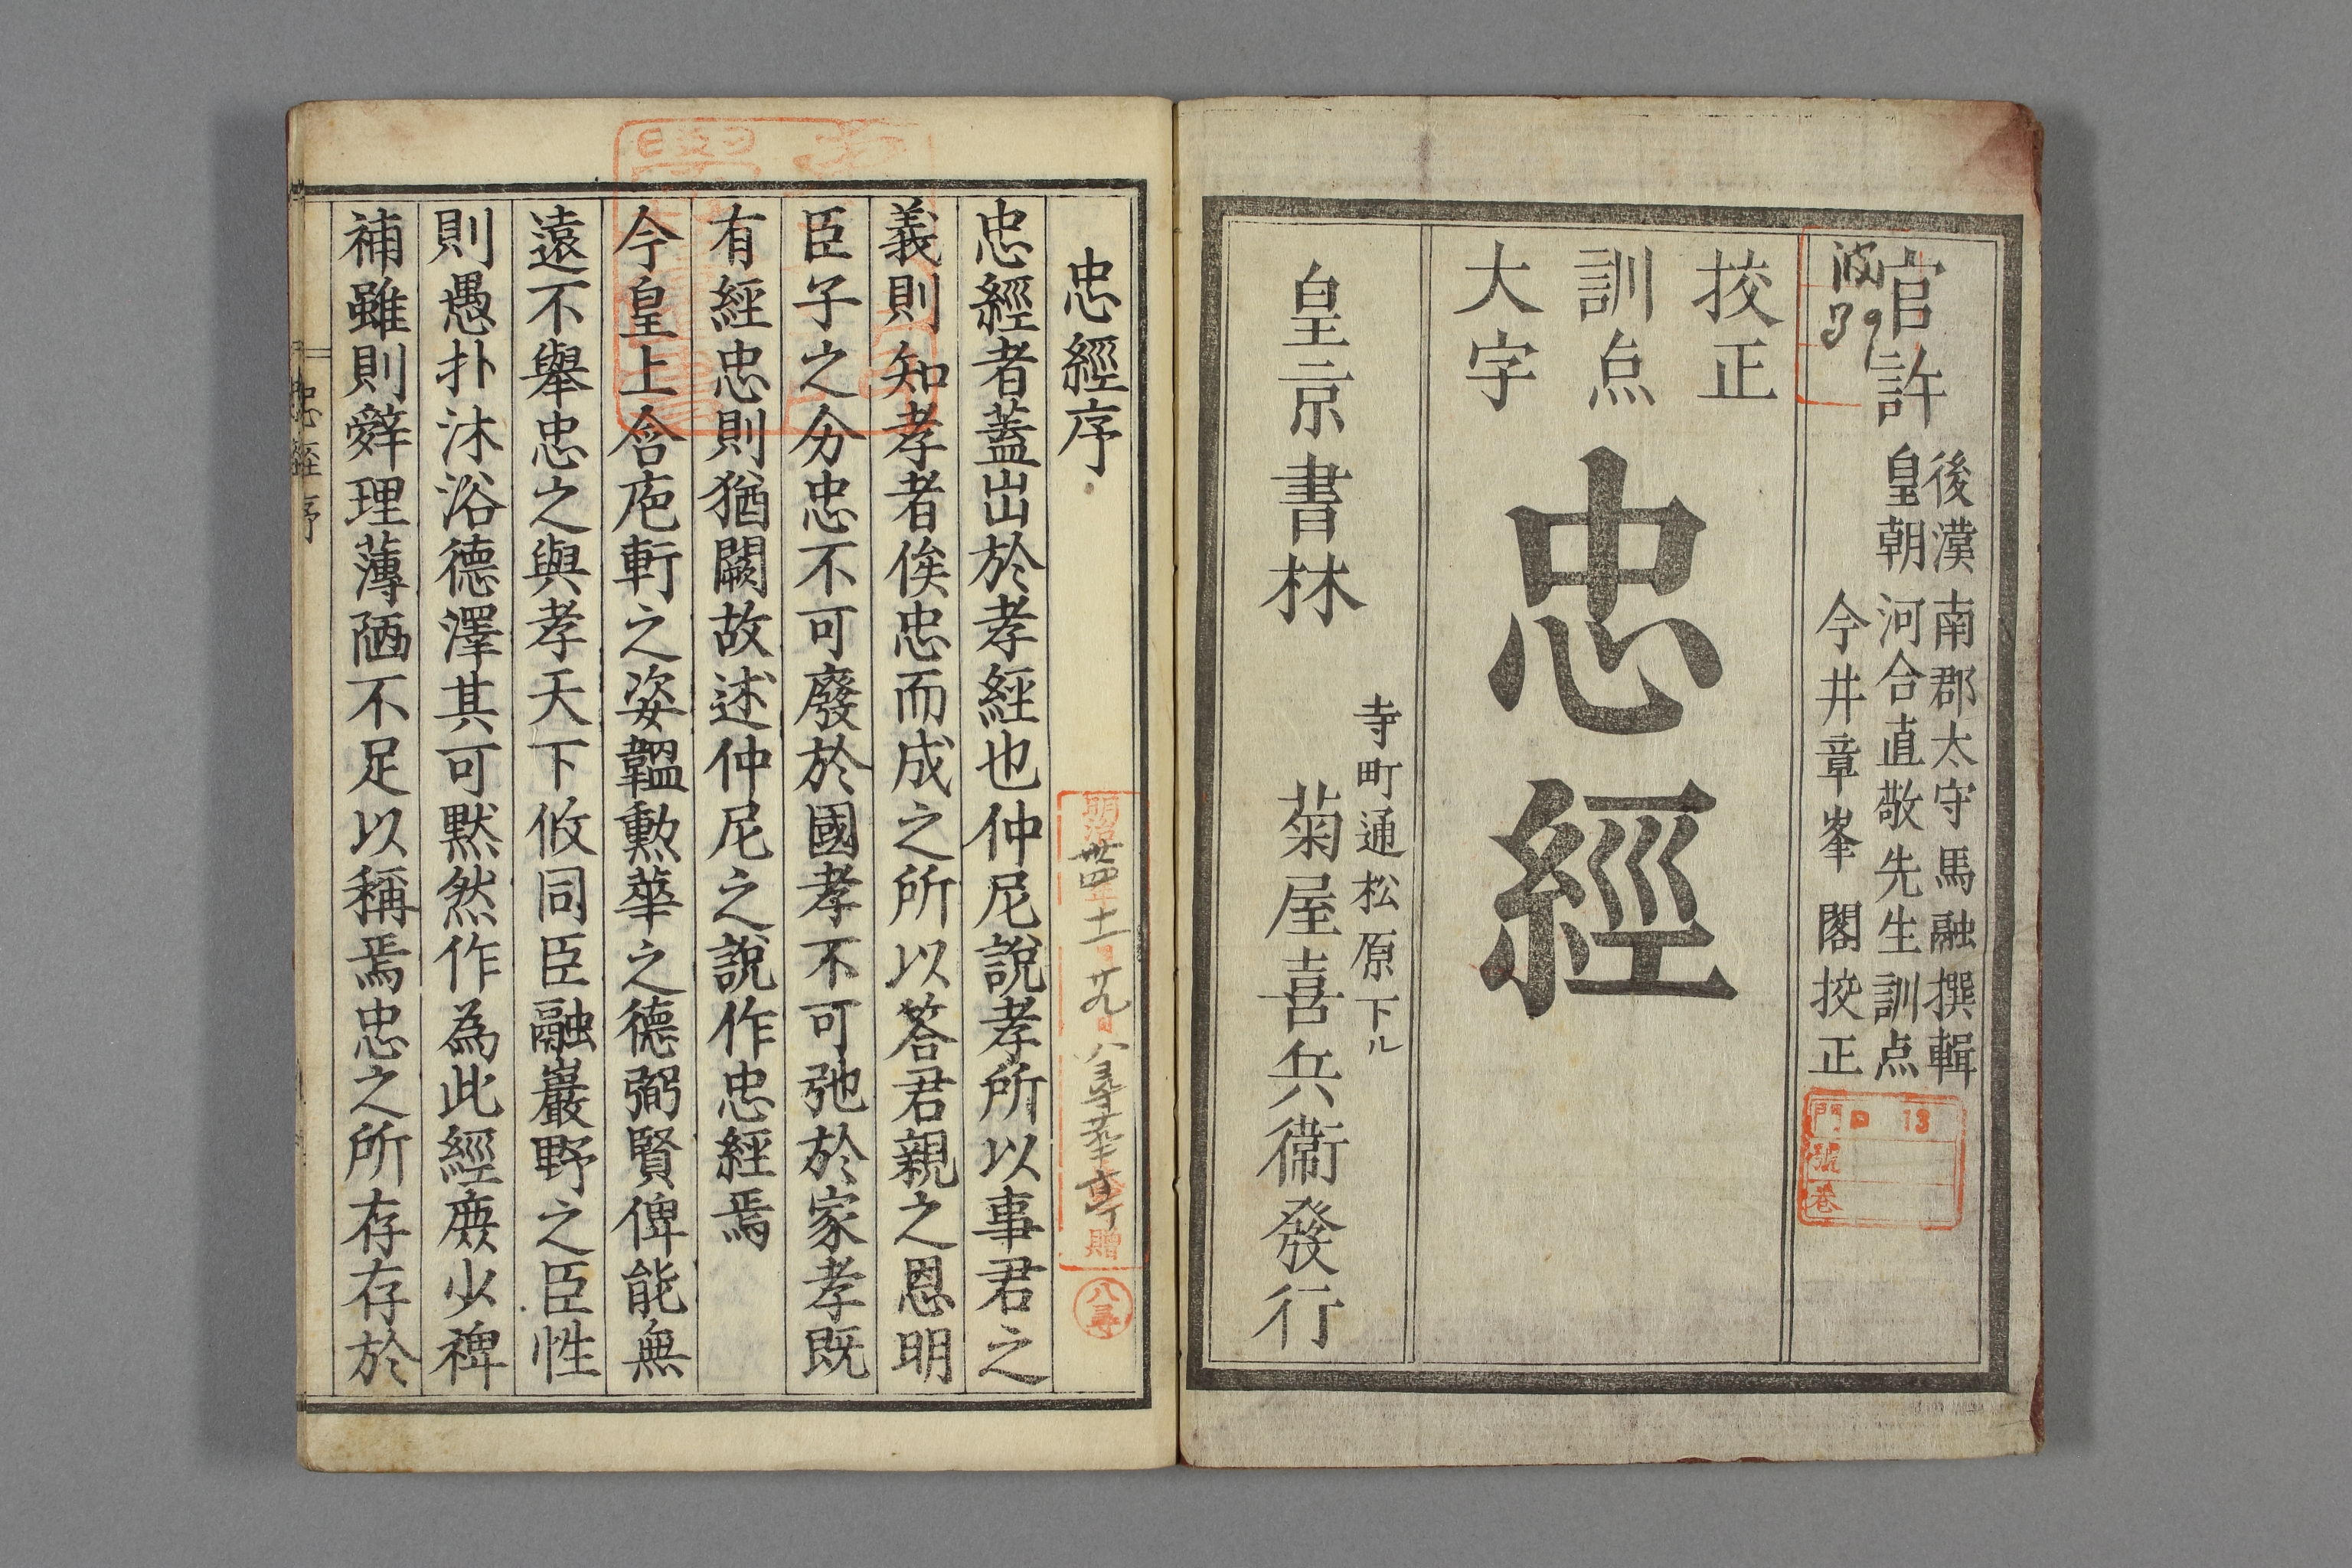 官許
後漢 南郡太守馬融撰輯
皇朝 河合直敬先生訓点
今井章峯閣挍正
挍正
訓点
大字
忠經
寺町通松原下ル
皇京書林 菊屋喜兵衞發行
波
39
門 ロ 13
號
卷
忠經序
明治卅四年十一月廿九日八尋華亭贈
八尋
忠經者蓋出於孝經也仲尼說孝所以事君之
義則知孝者俟忠而成之所以答君親之恩明
臣子之分忠不可廢於國孝不可弛於家孝既
有經忠則猶闕故述仲尼之說作忠經焉
今皇上含庖軒之姿韞勲華之德弼賢俾能無
遠不舉忠之與孝天下攸同臣融巖野之臣性
則愚扑沐浴德澤其可默然作為此經庻少裨
補雖則辤理薄陋不足以稱焉忠之所存存於
忠經序